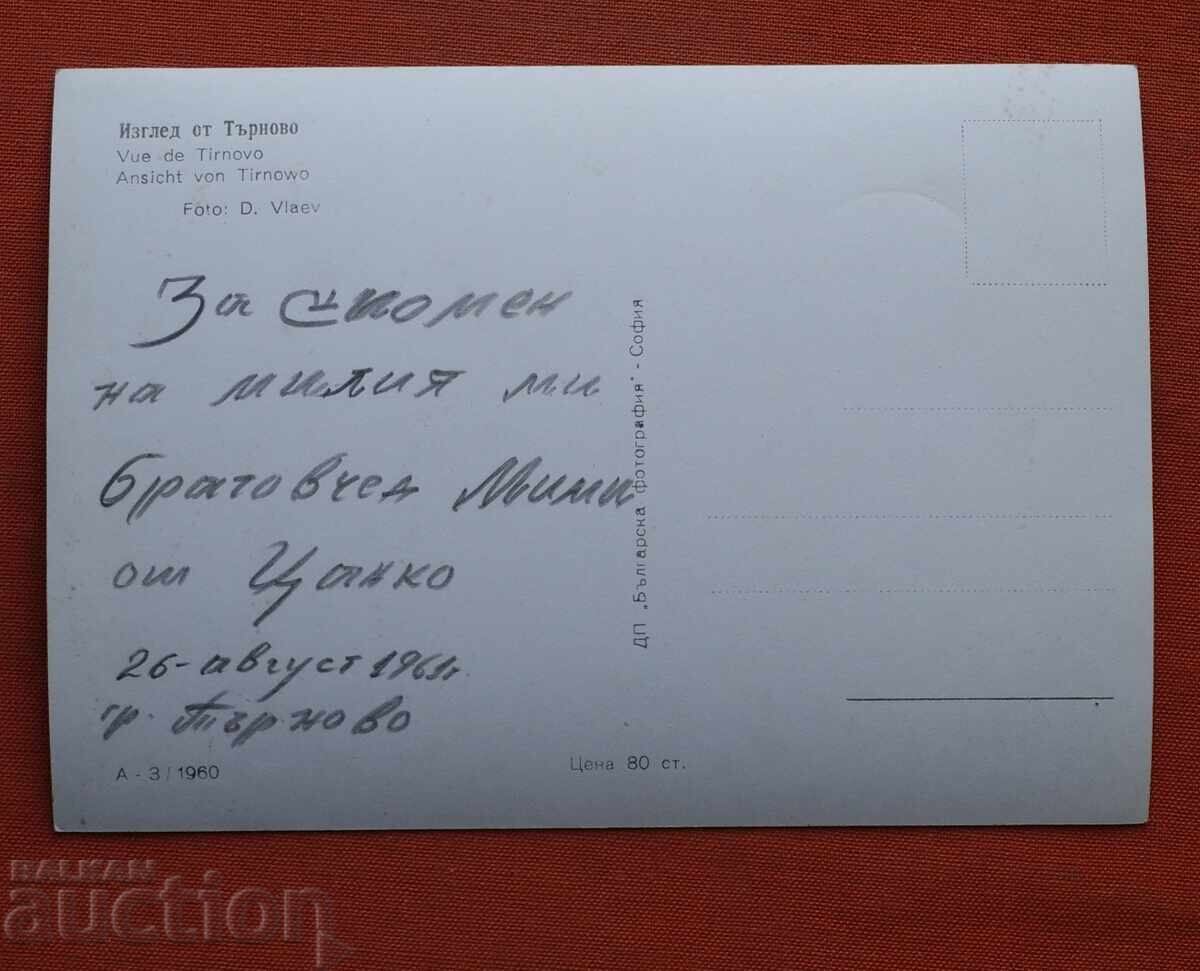 Изглед от Търново
Vue de Tirnovo
Ansicht von Tirnowo
Foto: D. Vlaev
За спомен
на милия ми
братовчед Мими
от Цанко
26-август 1961г.
гр. Търново
А - 3 / 1960
Цена 80 ст.
ДП „Българска фотография" - София
BALKAN
auction